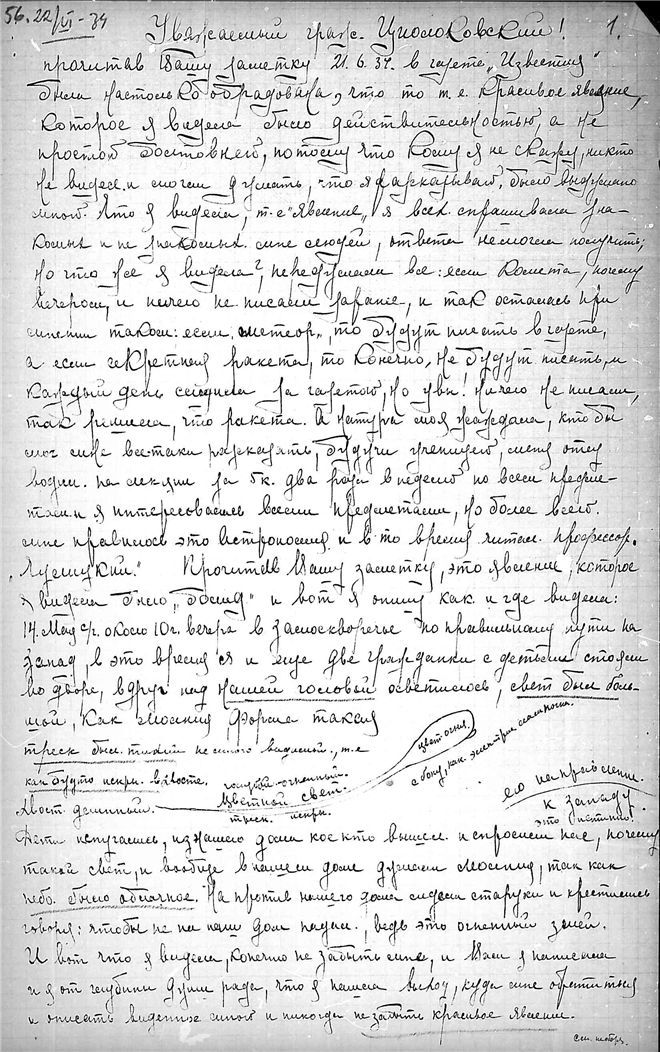 56. 22/VI-34
1.
Уважаемый граж. Циолковский!
прочитав Вашу заметку 21.6.34. в газете „Известия"
была настолько обрадована, что то т.е. красивое явление,
которое я видела было действительностью, а не
простой болтовней, потому что кому я не скажу, никто
не видел и могли думать, что я рассказываю, было выдумано
мной. Что я видела, т.е "явление" я всех спрашивала зна-
комых и не знакомых мне людей, ответа не могла получить;
но что же я видела?, передумала все: если комета, почему
вечером, и ничего не писали заранее, и так осталась при
мнении таком: если „метеор", то будут писать в газете,
а если секретная ракета, то конечно, не будут писать, и
каждый день следила за газетой, но увы. Ничего не писали,
так решила, что ракета. А натура моя жаждала, кто бы
мог мне все таки рассказать, будучи ученицей, меня отец
водил на лекции за 5к. два раза в неделю по всем предме-
там и я интересовалась всеми предметами, но более всего
мне нравилось это Астрономия и в то время читал профессор.
Прочитав Вашу заметку, это явление, которое
я видела было „Болид" и вот я опишу как и где видела:
14. Мая с/г. около 10ч. вечера в замоскворечье по правильному пути на
запад, в это время я и еще две гражданки с детьми стояли
во дворе, вдруг над нашей головой осветилось, свет был боль-
шой, как молния форма такая
треск был тихий не много видимый, т.е
как будто искры в хвосте.
Хвост длинный.
голубой-огненный.
Цветной свет.
треск искры.
цвет огня.
с боку, как электрич.
его направление.
к западу.
это истинно.
Дети испугались, из нашего дома кое кто вышел и спросили нас, почему
такой свет, и вообще в нашем доме думали молния, так как
небо было облачное. На против нашего дома сидели старухи и крестились
говоря: чтобы не на наш дом падал, ведь это огненный змей.
И вот что я видела, конечно не забыть мне, и Вам я написала
и я от глубины души рада, что я нашла выход, куда мне обратиться
и описать виденное мной и никогда не забыть красивое явление.